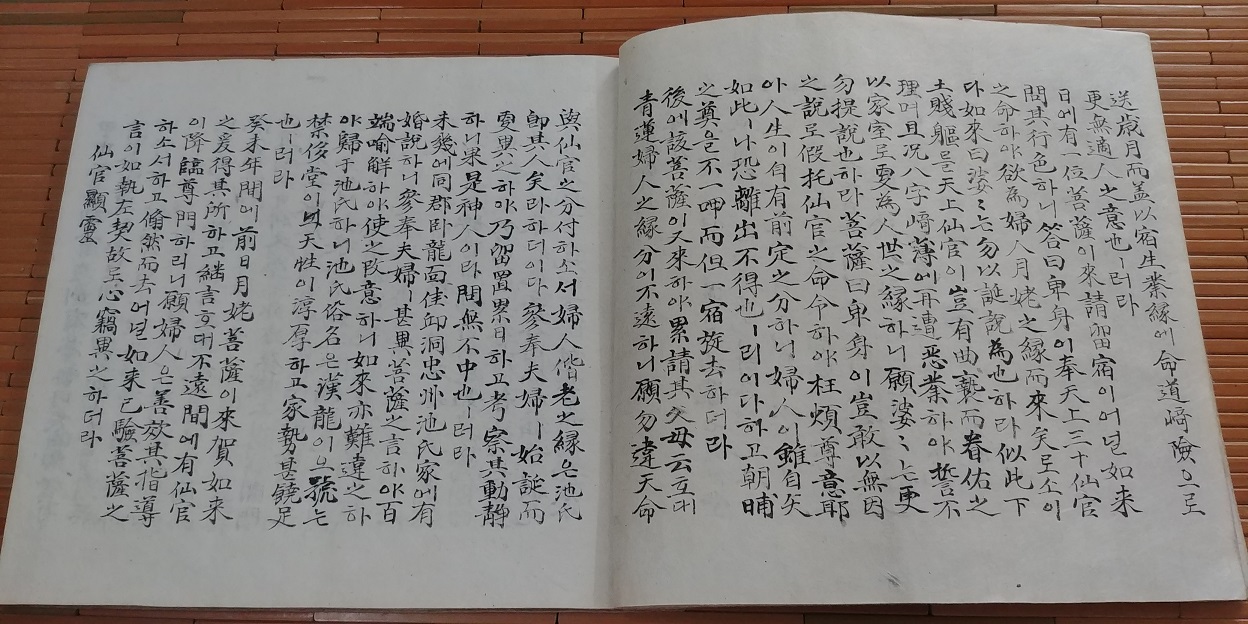 送歲月而盖以宿生業緣에命道崎險으로
更無適人之意也ㅣ러라
日에有一位菩薩이來請留宿이어널如來
問其行色하니答曰卑身이奉天上三十仙官
之命하야欲為婦人月姥之緣而來矣로소이
다如來曰婆〻은勿以誕說為也하라似此下
土賤軀를天上仙官이豈有曲褻而眷佑之
理며且况八字崎薄에再遭惡業하야誓不
以家室로更為人世之緣하니願婆〻는更
勿提說也하라菩薩曰卑身이豈敢以無因
之說로假托仙官之命令하야枉煩尊意耶
아人生이自有前定之分하니婦人이雖自矢
如此ㅣ나恐離出不得也ㅣ리이다하고朝晡
之奠을不一呷而但一宿旋去하더라
後에該菩薩이又來하야累請其父母云호대
青蓮婦人之緣分이不遠하니願勿違天命
與仙官之分付하소서婦人偕老之緣은池氏
卽其人矣라하더이다參奉夫婦ㅣ始誕而
更異之하야乃留置累日하고考察其動靜
하니果是神人이라間無不中也ㅣ러라
未幾에同郡臥龍面佳卯洞忠州池氏家에有
婚說하니參奉夫婦ㅣ甚異菩薩之言하야百
端喻解하야使之改意하니如來亦難違之하
야歸于池氏하니池氏俗名은漢龍이오號는
禁侈堂이며天性이淳厚하고家勢甚饒足
也ㅣ러라
癸未年間에前日月姥菩薩이來賀如來
之爰得其所하고繼言호대不遠間에有仙官
이降臨尊門하리니願婦人은善效其指導
하소서하고翛然而去어널如來已驗菩薩之
言이如執左契故로心竊異之하더라
仙官顯靈